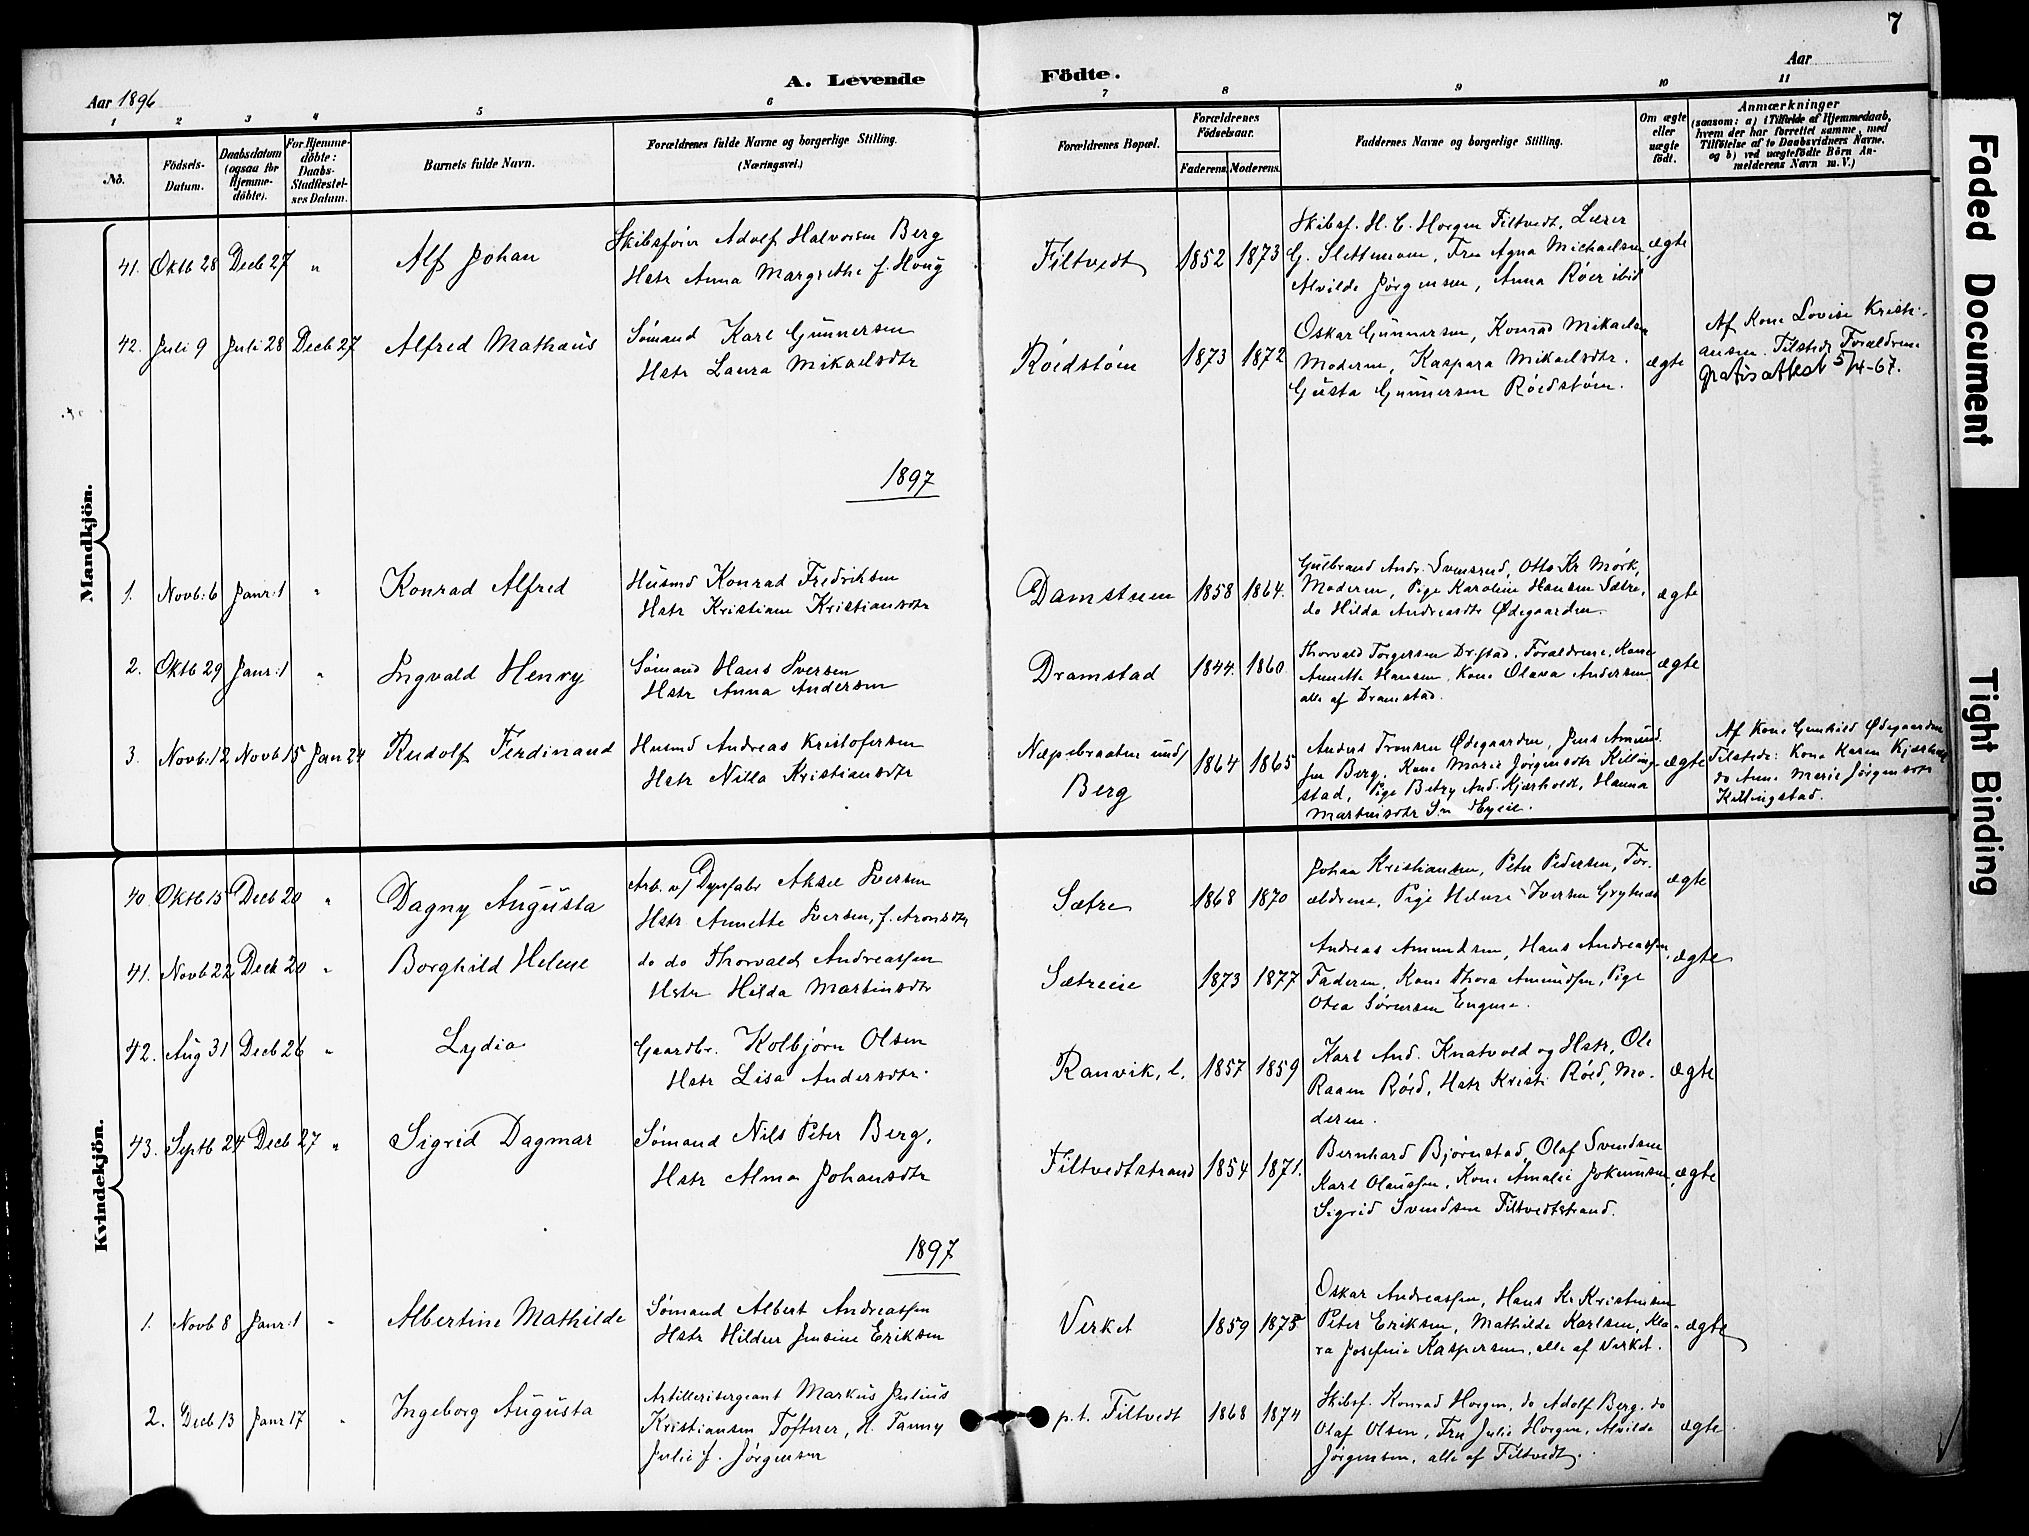 7
A. Levende Födte.
Aar 1896
Aar
1 2 3 4 5 6 7 8 9 10 11
No.
Födsels-Datum.
Daabsdatum (ogsaa for Hjemme-döbte).
For Hjemme-döbte: Daabs-Stadfæstel-ses Datum.
Barnets fulde Navn.
Forældrenes fulde Navne og borgerlige Stilling. (Næringsvei.)
Forældrenes Bopæl.
Forældrenes Födselsaar.
Faderens. Moderens.
Faddernes Navne og borgerlige Stilling.
Om ægte eller uægte födt.
Anmærkninger
(saasom: a) i Tilfælde af Hjemmedaab, hvem der har forrettet samme, med Tilföielse af to Daabsvidners Navne, og b) ved uægtefödte Börn An-melderens Navn m. V.)
Mandkjön.
41. Oktb 28 Decb 27 " Alf Johan
Skibsfører Adolf Halvorsen Berg
Hstr Anna Margrethe f. Houg
Filtvedt 1852 1873
Skibsf. H. C. Horgen Filtvedt, Lærer
G. Slettemoen, Fru Agna Michaelsen
Alvilde Jørgensen, Anna Röer ibid
ægte
42. Juli 9 Juli 28 Decb 27 Alfred Mathæus
Sømand Karl Gunnersen
Hstr Laura Mikaelsdtr
Röedstöen 1873 1872
Oskar Gunnersen, Konrad Mikaelsen
Moderen, Kaspara Mikaelsdtr.
Gusta Gunnersen Röedstöen.
ægte
Af Kone Lovise Kristi-
ansen. Tilstede Forældrene
gratisattest 5/4-67.
1897
1. Novb: 6 Janr: 1 " Konrad Alfred
Husmd Konrad Fredriksen
Hstr Kristiane Kristiansdtr
Damstuen 1858 1864.
Gulbrand Andr. Svensrud, Otto Kr Mörk,
Moderen, Pige Karoline Hansen Sætre,
do Hilda Andreasdtr Ødegaarden.
ægte
2. Oktb 29 Janr: 1 " Ingvald Henry
Sømand Hans Iversen
Hstr Anna Andersen
Dramstad 1844. 1860
Thorvald Torgersen Dr.stad. Forældrene, Kone
Annette Hansen, Kone Olava Andersen
alle af Dramstad.
ægte
3. Novb: 12 Novb 15 Jan 24 Rudolf Ferdinand
Husmd Andreas Kristofersen
Hstr Nilla Kristiansdtr
Næpebraaten und/
Berg
1864 1865
Anders Tronsen Ødegaarden, Jens Amund
sen Berg. Kone Marie Jørgensdtr Killing-
stad, Pige Betzy And. Kjærholdt, Hanna
Martinsdtr
ægte
Af Kone Gunhild Ødegaarden
Tilstede: Kone Karen Kjærholdt
do Anne Marie Jörgensdtr
Killingstad.
Kvindekjön.
40. Oktb 15 Decb 20 " Dagny Augusta
Arb. v/ Dynfabr Aksel Iversen
Hstr Annette Iversen, f. Aronsdtr
Sætre 1868 1870
Johan Kristiansen, Peter Pedersen, For-
ældrene, Pige Helene Iversen Grytnes
ægte
41. Novb 22 Decb 20 " Borghild Helene
do do Thorvald Andreassen
Hstr Hilda Martinsdtr
Sætreeie 1873 1877
Andreas Amundsen, Hans Andreassen,
Faderen, Kone Thora Amundsen, Pige
Otea Sørensen Engene.
ægte
42. Aug 31 Decb 26 " Lydia
Gaardbr. Kolbjörn Olsen
Hstr Lisa Andersdtr.
Ranvik, l. 1857 1859
Karl And. Knatvold og Hstr, Ole
Raaen Röed, Hstr Kristi Röed, Mo-
deren.
ægte
43. Septb 24 Decb 27 " Sigrid Dagmar
Sømand Nils Peter Berg,
Hstr Alma Johansdtr
Filtvedtstrand 1854 1871.
Bernhard Bjørnstad, Olaf Svendsen
Karl Olaussen, Kone Amalie Jokumsen,
Sigrid Svendsen Filtvedtstrand.
ægte
1897
1. Novb 8 Janr: 1 " Albertine Mathilde
Sømand Albert Andreassen
Hstr Hildur Jensine Eriksen
Verket 1859 1875
Oskar Andreassen, Hans Kr Kristensen
Peter Eriksen, Mathilde Karlsen, Kla-
ra Josefine Kaspersen, alle af Verket.
ægte
2. Decb 13 Janr 17 " Ingeborg Augusta
Artillerisergeant Markus Julius
Kristiansen Toftner, H. Fanny
Julie f. Jørgensen
p.t. Filtvedt 1868 1874
Skibsf. Konrad Horgen, do Adolf Berg. do
Olaf Olsen, Fru Julie Horgen, Alvilde
Jørgensen, alle af Filtvedt.
ægte
Faded Document
Tight Binding